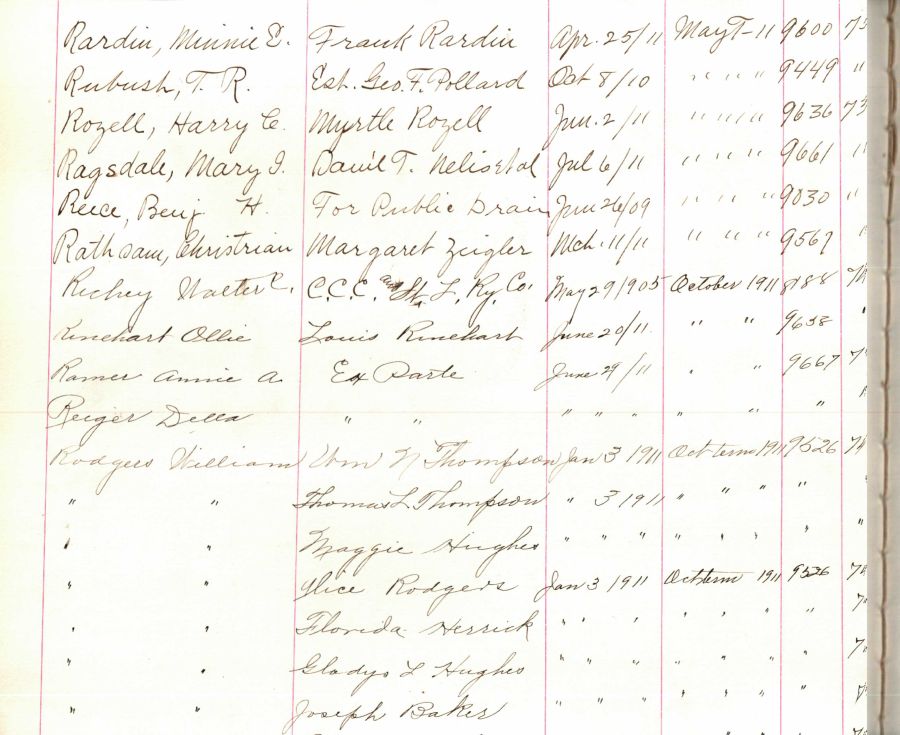 Rardin, Minnie E. Frank Rardin Apr. 25/11 May T-11 9600
Rubush, T. R. Est. Geo. F. Pollard Oct 8/10 " " " " 9449 "
Rozell, Harry C. Myrtle Rozell Jun. 2/11 " " " " 9636
Ragsdale, Mary J. Daniel T. Nelis et al Jul 6/11 " " " " 9661 "
Reece, Benj H. For Public Drain Jun 26/09 " " " " 9030 "
Rathsam, Christrian Margaret Zeigler Mch. 11/11 " " " " 9567 "
Richey Walter C.C.C. and St. L. Ry. Co. May 29 1905 October 1911 8188
Rinehart Ollie Louis Rinehart June 20/11 " " 9638 "
Ramer Annie A Ex Parte June 29/11 " " 9667
Reiger Della " " " " " " " "
Rodgers William Wm N Thompson Jan 3 1911 Oct term 1911 9526
" " Thomas L Thompson " 3 1911 " " " " "
" " Maggie Hughes " " " " " " " "
" " Alice Rodgers Jan 3 1911 Oct term 1911 9526
" " Florida Herrick " " " " " " "
" " Gladys L Hughes " " " " " " "
" " Joseph Baker " " " " " " "